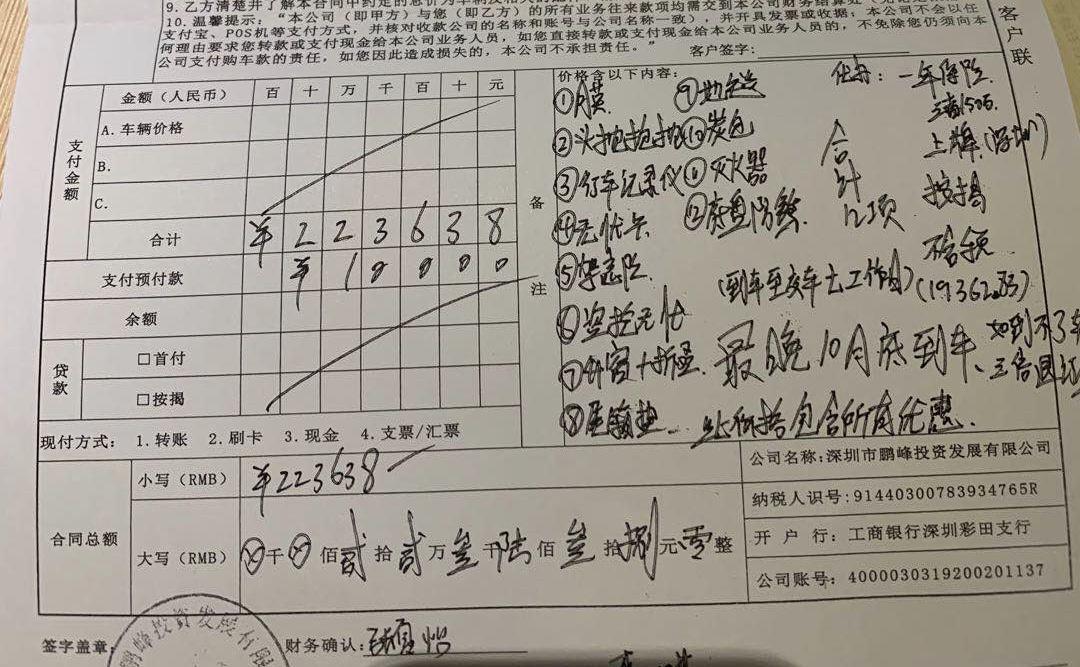 9. 乙方清楚并了解本合同中约定的总价为车辆及相关的
10. 温馨提示：“本公司（即甲方）与您（即乙方）的所有业务往来款项均需交到本公司财务结算处
支付宝、POS机等支付方式，并核对收款公司的名称和账号与公司名称一致），并开具发票或收据；本公司不会以任
何理由要求您转款或支付现金给本公司业务人员，如您直接转款或支付现金给本公司业务人员的，不免除您仍须向本
公司支付购车款的责任，如您因此造成损失的，本公司不承担责任。”
客户签字：
客户联
支付金额
金额（人民币） 百 十 万 千 百 十 元
A. 车辆价格
B.
C.
合计 ¥ 2 2 3 6 3 8
支付预付款 ¥ 1 0 0 0 0
余额
贷款
□首付
□按揭
现付方式： 1. 转账 2. 刷卡 3. 现金 4. 支票/汇票
备注
价格含以下内容：
①膜
②头
③行车记录仪
④无忧卡
⑤
⑥盗抢无忧
⑦
⑧
⑨地
⑩
⑪灭火器
⑫底盘防锈
合计12项
代办：一年保险
三者150万
上牌（深圳）
按揭
不含税
(19362.83)
（到车至交车七工作日）
最晚10月底到车、如到不了车
三倍退订
此价格包含所有优惠.
合同总额
小写（RMB） ¥223638
大写（RMB） ⊗仟⊗佰贰拾贰万叁仟陆佰叁拾捌元零整
公司名称：深圳市鹏峰投资发展有限公司
纳税人识号：91440300783934765R
开 户 行：工商银行深圳彩田支行
公司账号：4000030319200201137
签字盖章：
鹏峰投资发展有限
财务确认：